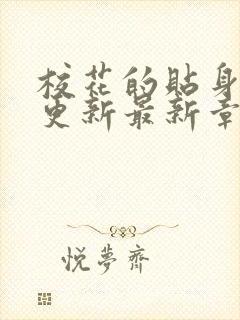 校花的贴身
更新最新章
悦梦齋